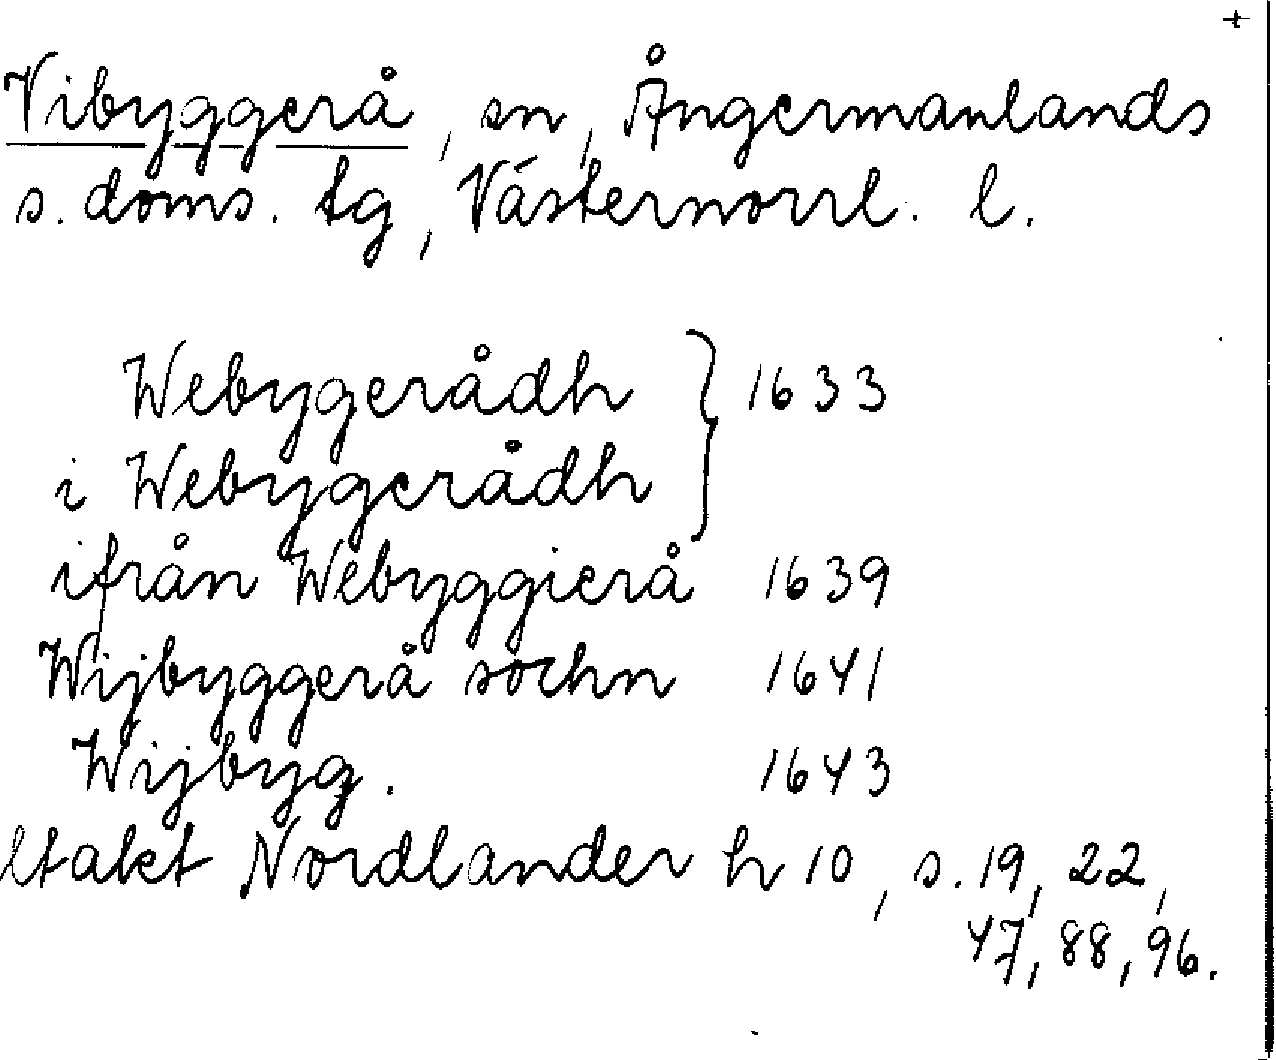 +
Vibyggerå, sn, Ångermanlands
s. doms. tg, Västernorrl. l.
Webygerådh } 1633
i Webygerådh
ifrån Webyggierå 1639
Wijbyggerå sochn 1641
Wijbyg. 1643
Utakt Nordlander h 10, s. 19, 22,
47, 88, 96.